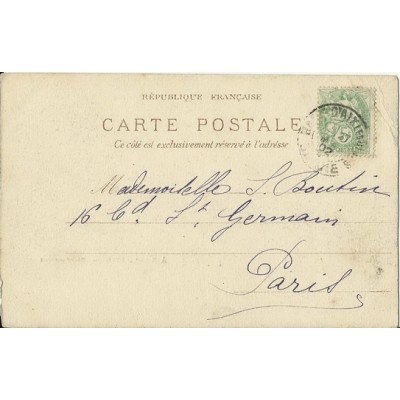 RÉPUBLIQUE FRANÇAISE
CARTE POSTALE
Ce côté est exclusivement réservé à l'adresse
Mademoiselle S. Boutin
16 Bd St. Germain
Paris